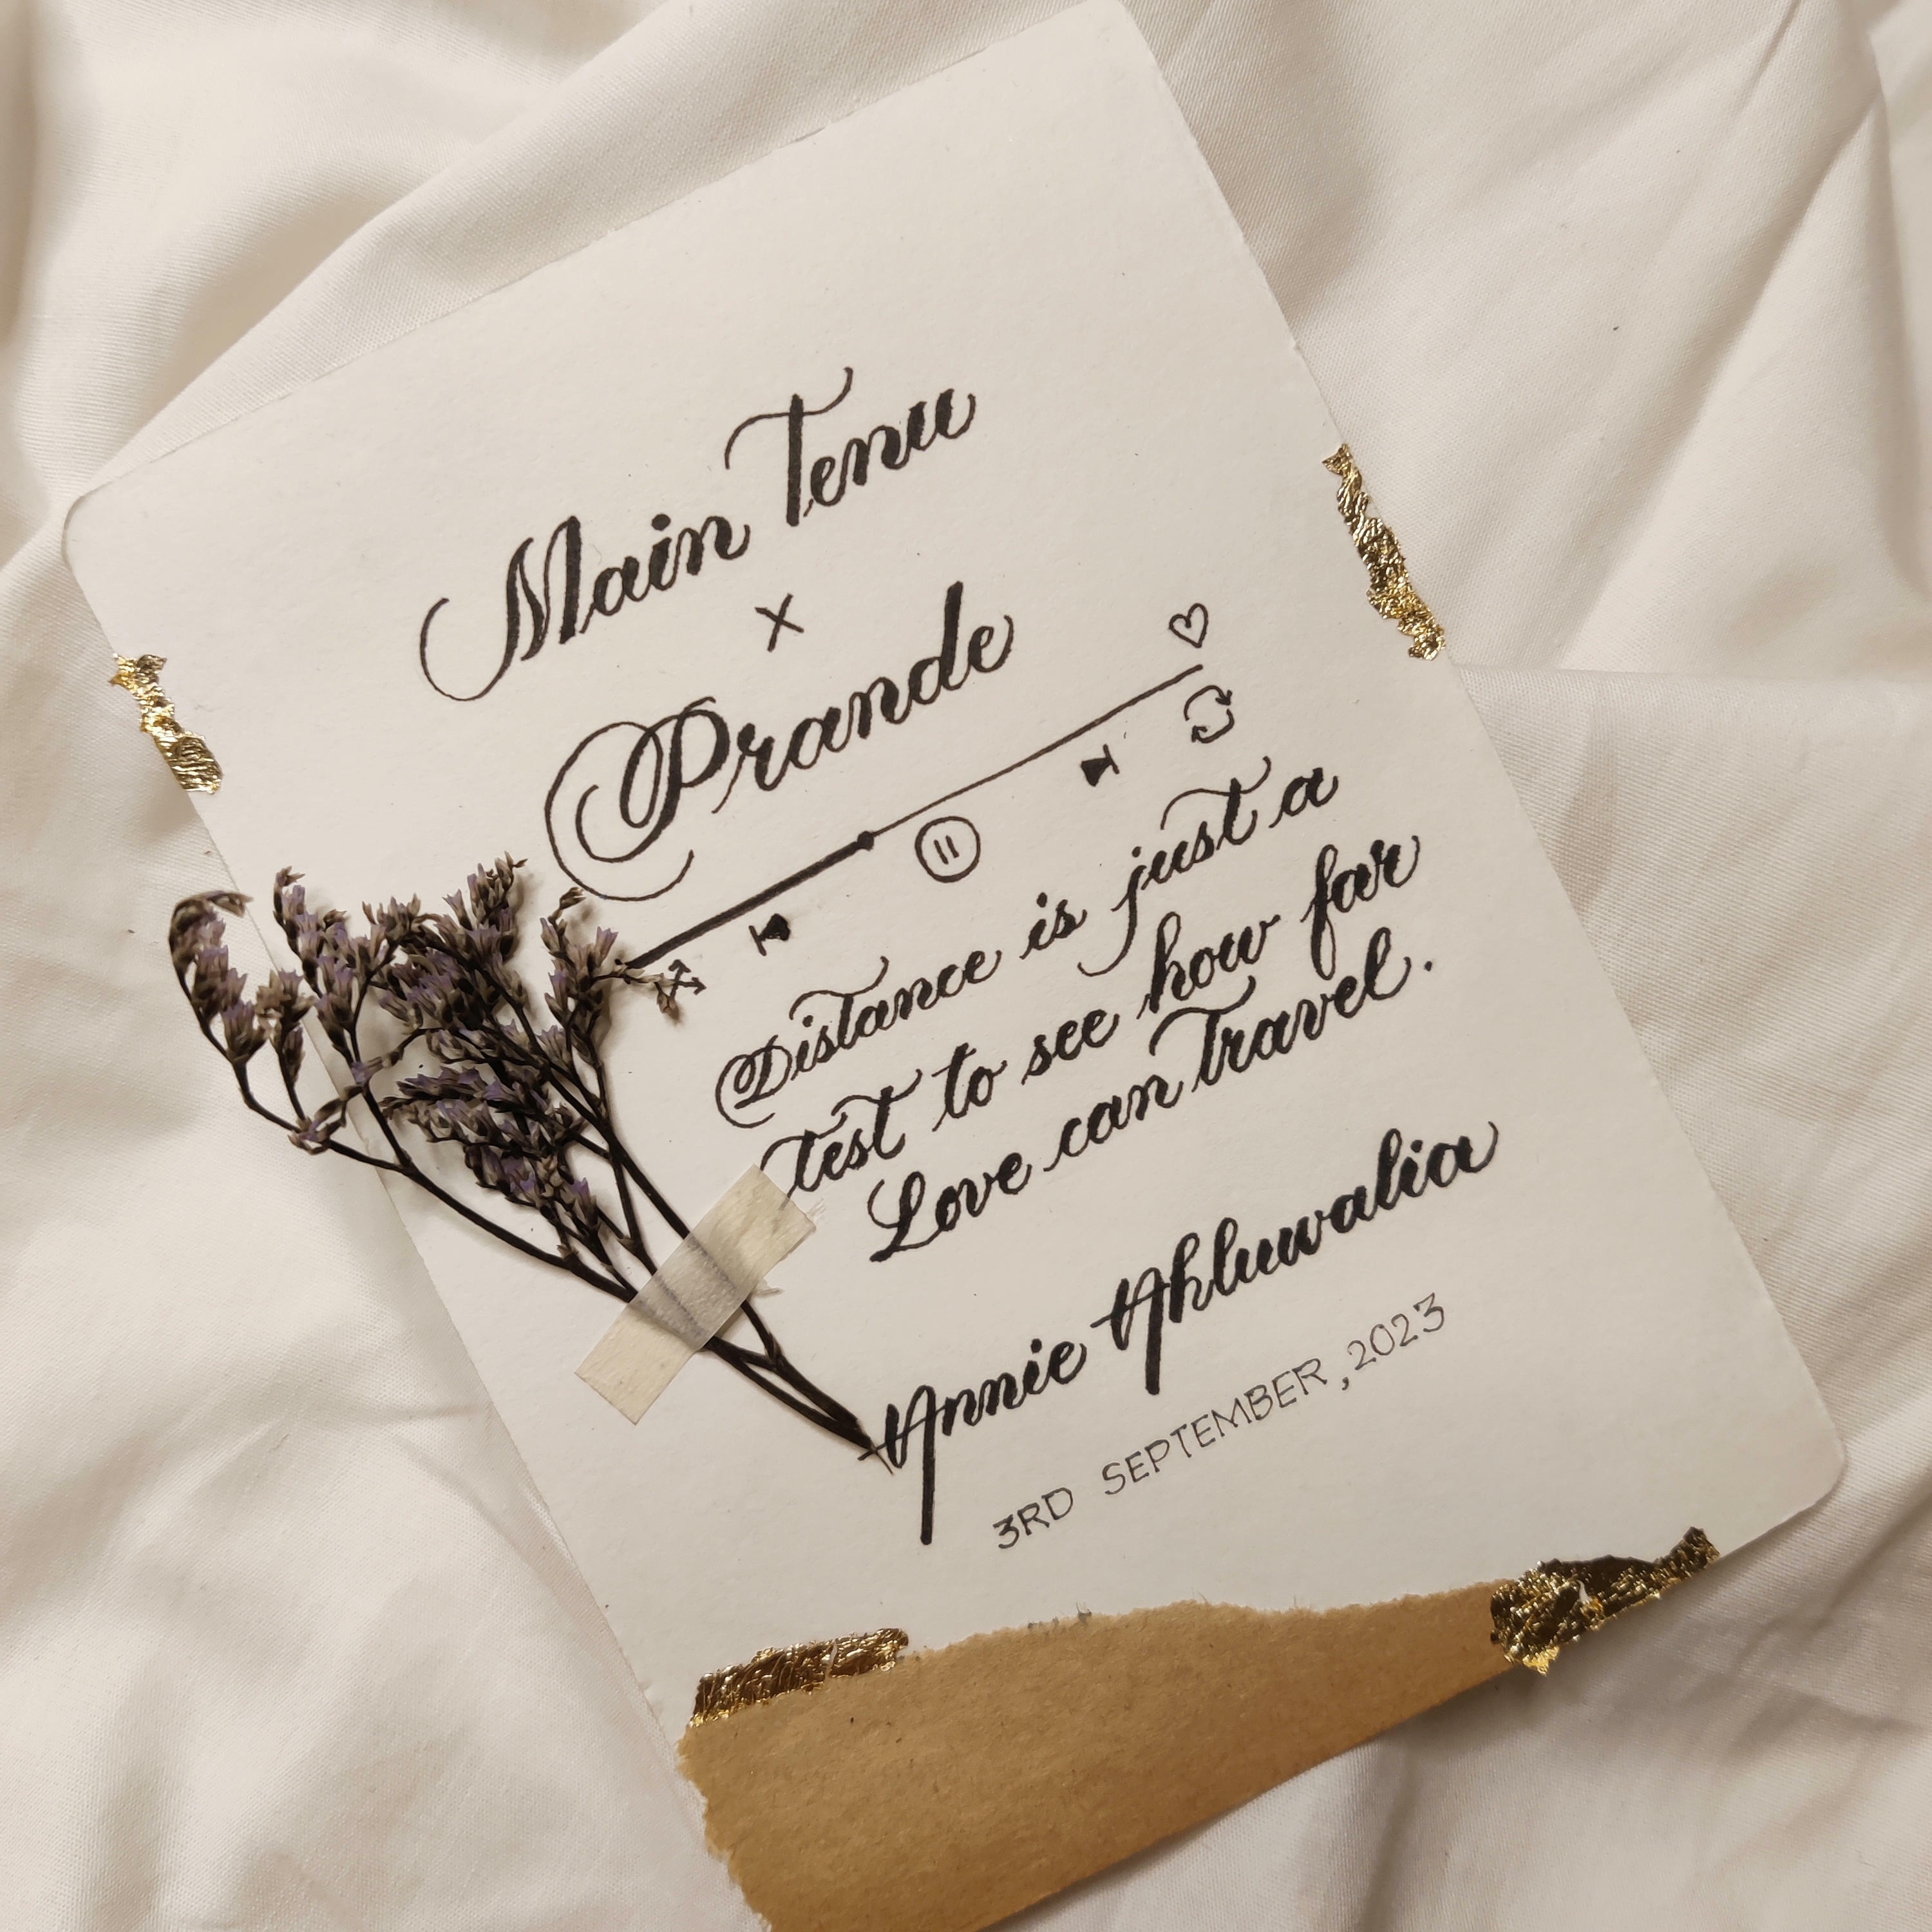 Main Tenu
x
Prande
Distance is just a
test to see how far
Love can Travel.
Annie Ahluwalia
3RD SEPTEMBER, 2023